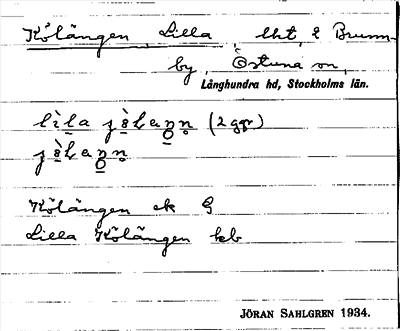 Kölängen, Lilla, lht, 2 Brunn-
by, Östuna sn,
Långhundra hd, Stockholms län.
lìla (2 ggr)
Kölängen ek G
Lilla Kölängen kb
JÖRAN SAHLGREN 1934.